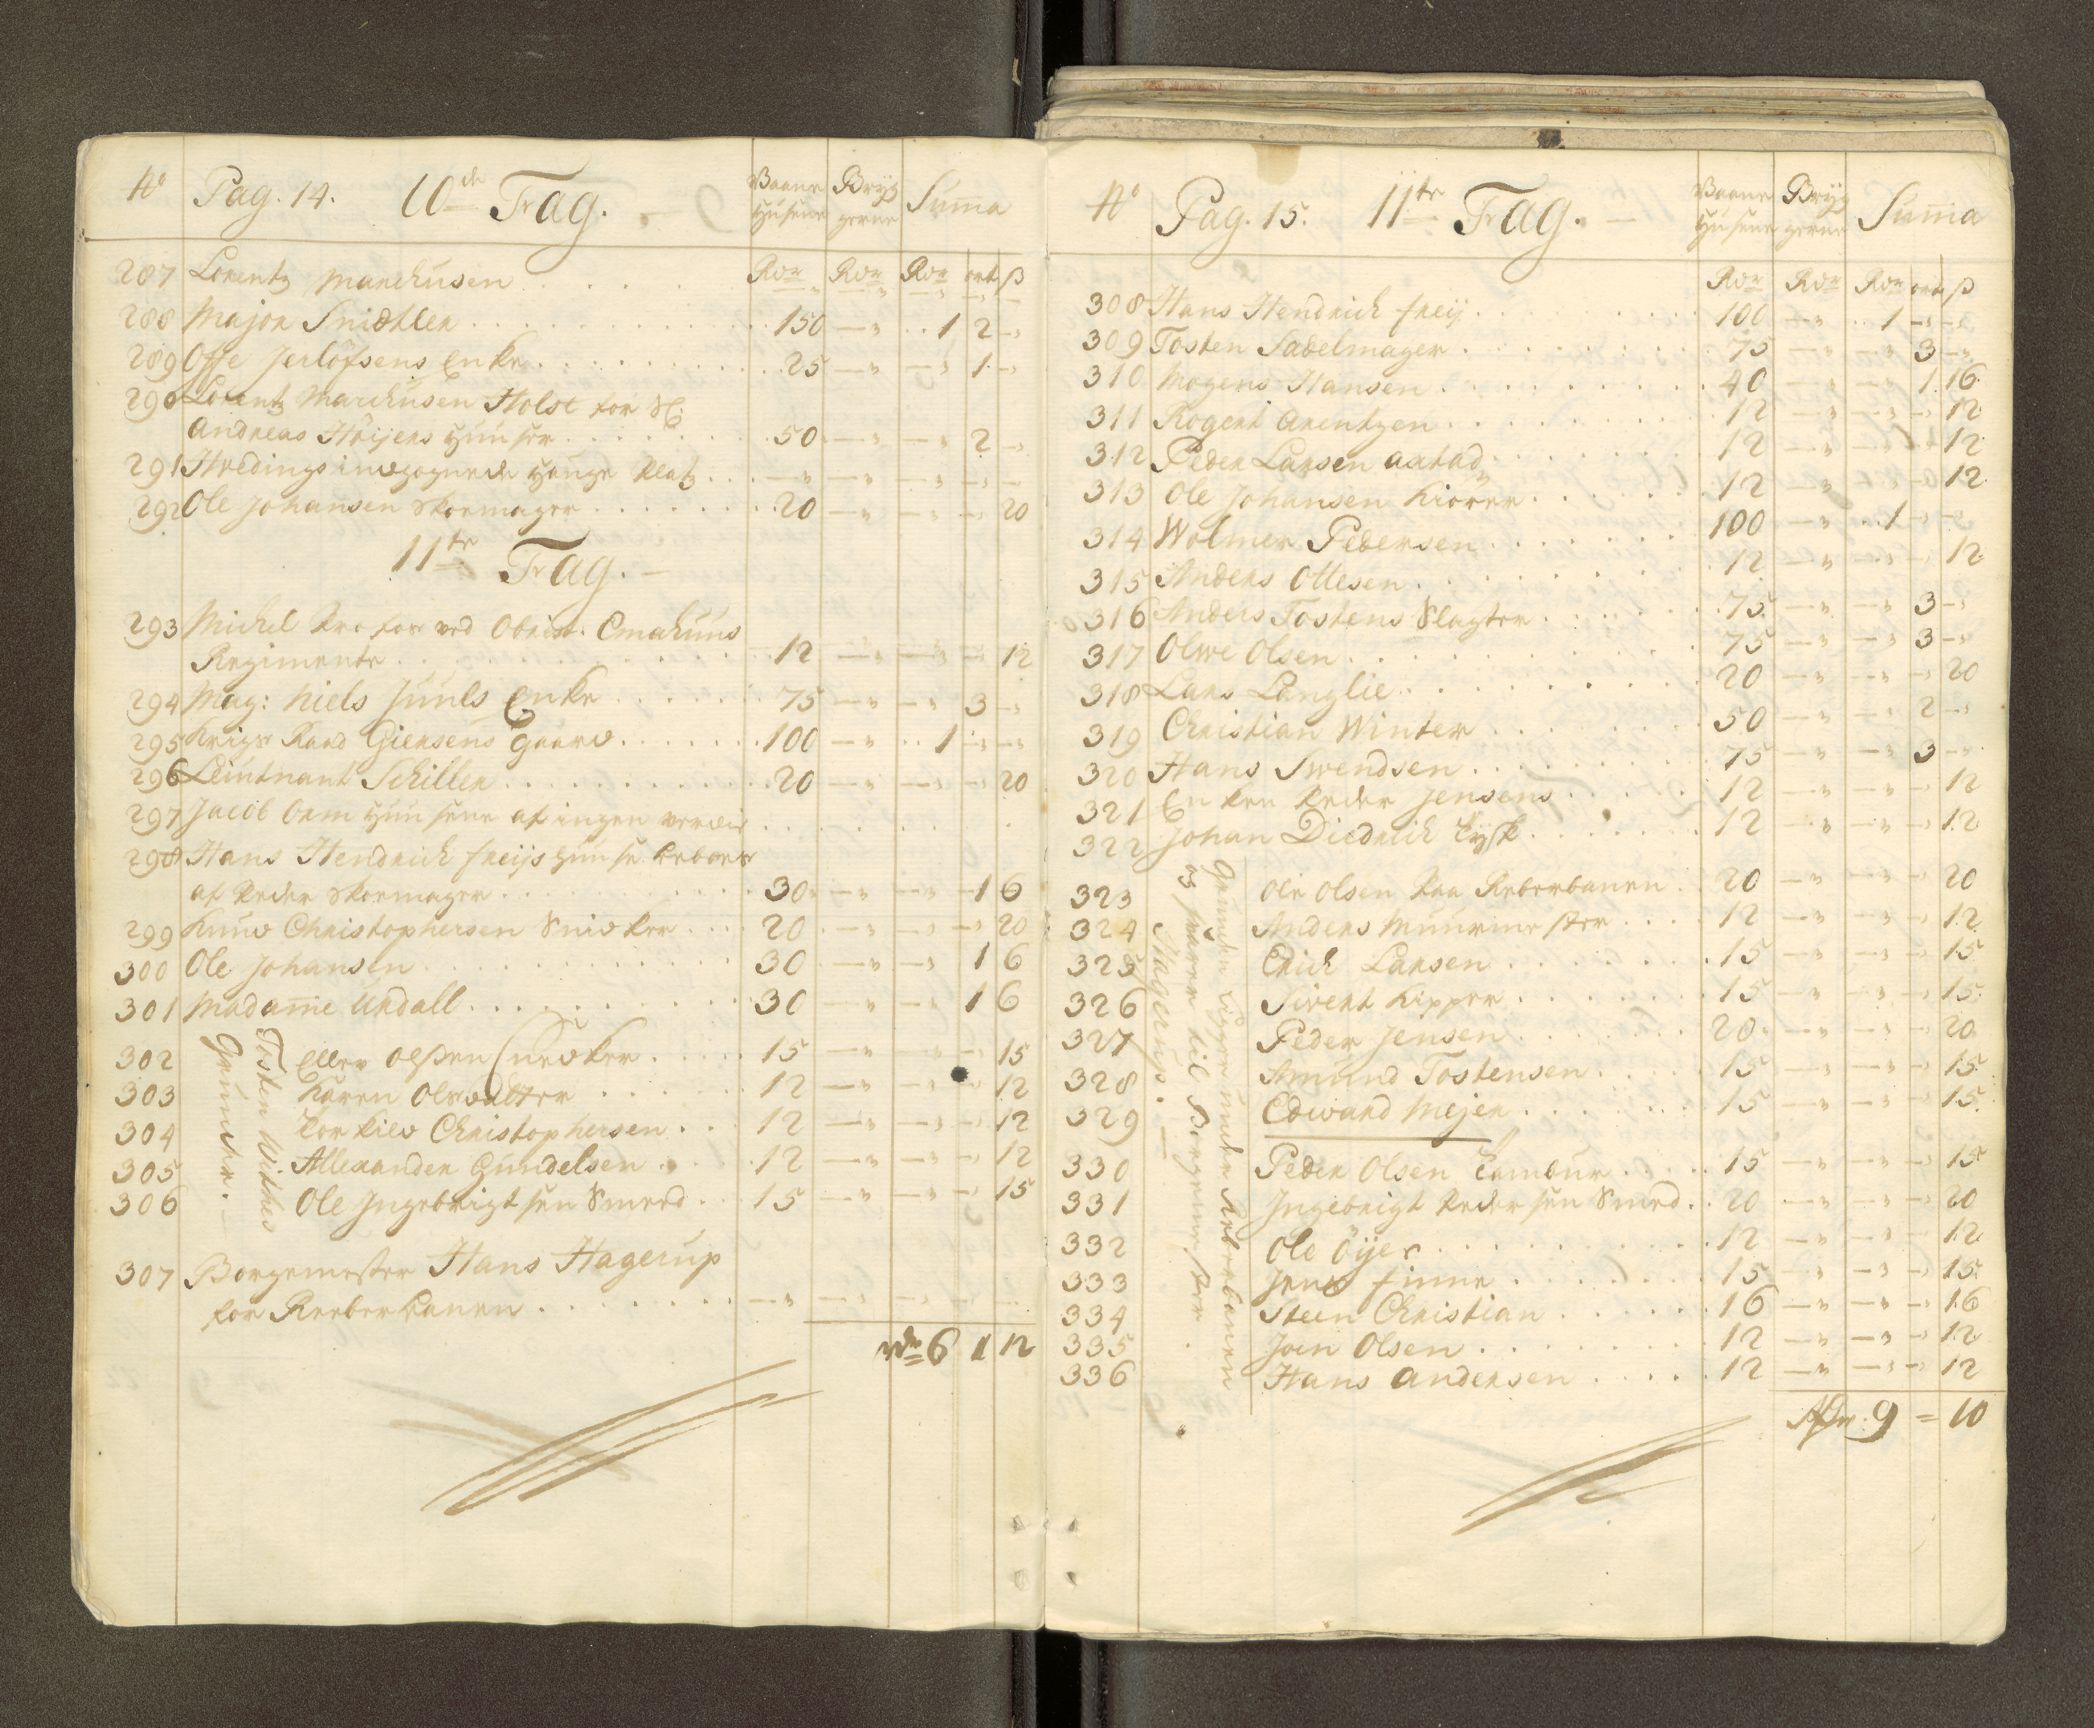 No Pag. 14. 10de Frag. Vaane Husene Bryg gerne Summa
Rdr Rdr Rdr ort ß
287 Lorentz Marchusen
288 Major Snidtler 150 1 2
289 Offe Jerlöfsens Enke 25 1
290 Lorentz Marchusen Holst for Sl:
Andreas Höijers Huuser 50 2
291
292 Ole Johansen Skoemager 20 20
11te Frag.
293 Michel ved Obrist.
Regimente 12 12
294 Mag: Niels Juuls Enke 75 3
295 Krigs Raad Giersens Gaard 100 1
296 Leiutnant Schiller 20 20
297 Jacob Orm Huusene af ingen verdie
298 Hans Hendrich freijs Huuse beboes
af Peder Skoemager 30 1 6
299 Knud Christophersen Snidker 20 20
300 Ole Johansen 30 1 6
301 Madame Undall 30 1 6
Tosten Withes
Grunder.
302 Eller Olßen Snedker 15 15
303 Karen Olsdatter 12 12
304 Torkild Christophersen 12 12
305 Allexander Gundelsen 12 12
306 Ole Ingebrigtsen Smed 15 15
307 Borgemester Hans Hagerup
for Reeberbanen
Rdr 6 1 12
No Pag. 15. 11te Frag. Vaane Husene Bryg gerne Summa
Rdr Rdr Rdr ort ß
308 Hans Hendrich freij 100 1
309 Tosten Sadelmager 75 3
310 Mogens Hansen 40 1 16
311 Rogert Arentzen 12 12
312 Peder Larsen Aastad 12 12
313 Ole Johansen Kiörer 12 12
314 Wolmer Pedersen 100 1
315 Anders Ottesen 12 12
316 Anders Tostens Slagter 75 3
317 Olwe Olsen 75 3
318 Lars Langlie 20 20
319 Christian Winter 50 2
320 Hans Swendsen 75 3
321 Enken Peder Jensens 12 12
322 Johan Diedrich Tysk 12 12
Grunden ligger under Reberbanen
og svarer til Borgemester
Hagerup.
323 Ole Olsen paa Reberbanen 20 20
324 Anders Muurmester 12 12
325 Erich Larsen 15 15
326 Sivert Kipper 15 15
327 Peder Jensen 20 20
328 Amund Tostensen 15 15
329 Edward Mejer 15 15
330 Peder Olsen Tambur 15 15
331 Ingebrigt Pedersen Smed 20 20
332 Ole Öijer 12 12
333 Jens Finne 15 15
334 Steen Christian 16 16
335 Joen Olsen 12 12
336 Hans Andersen 12 12
Rdr. 9 = 10